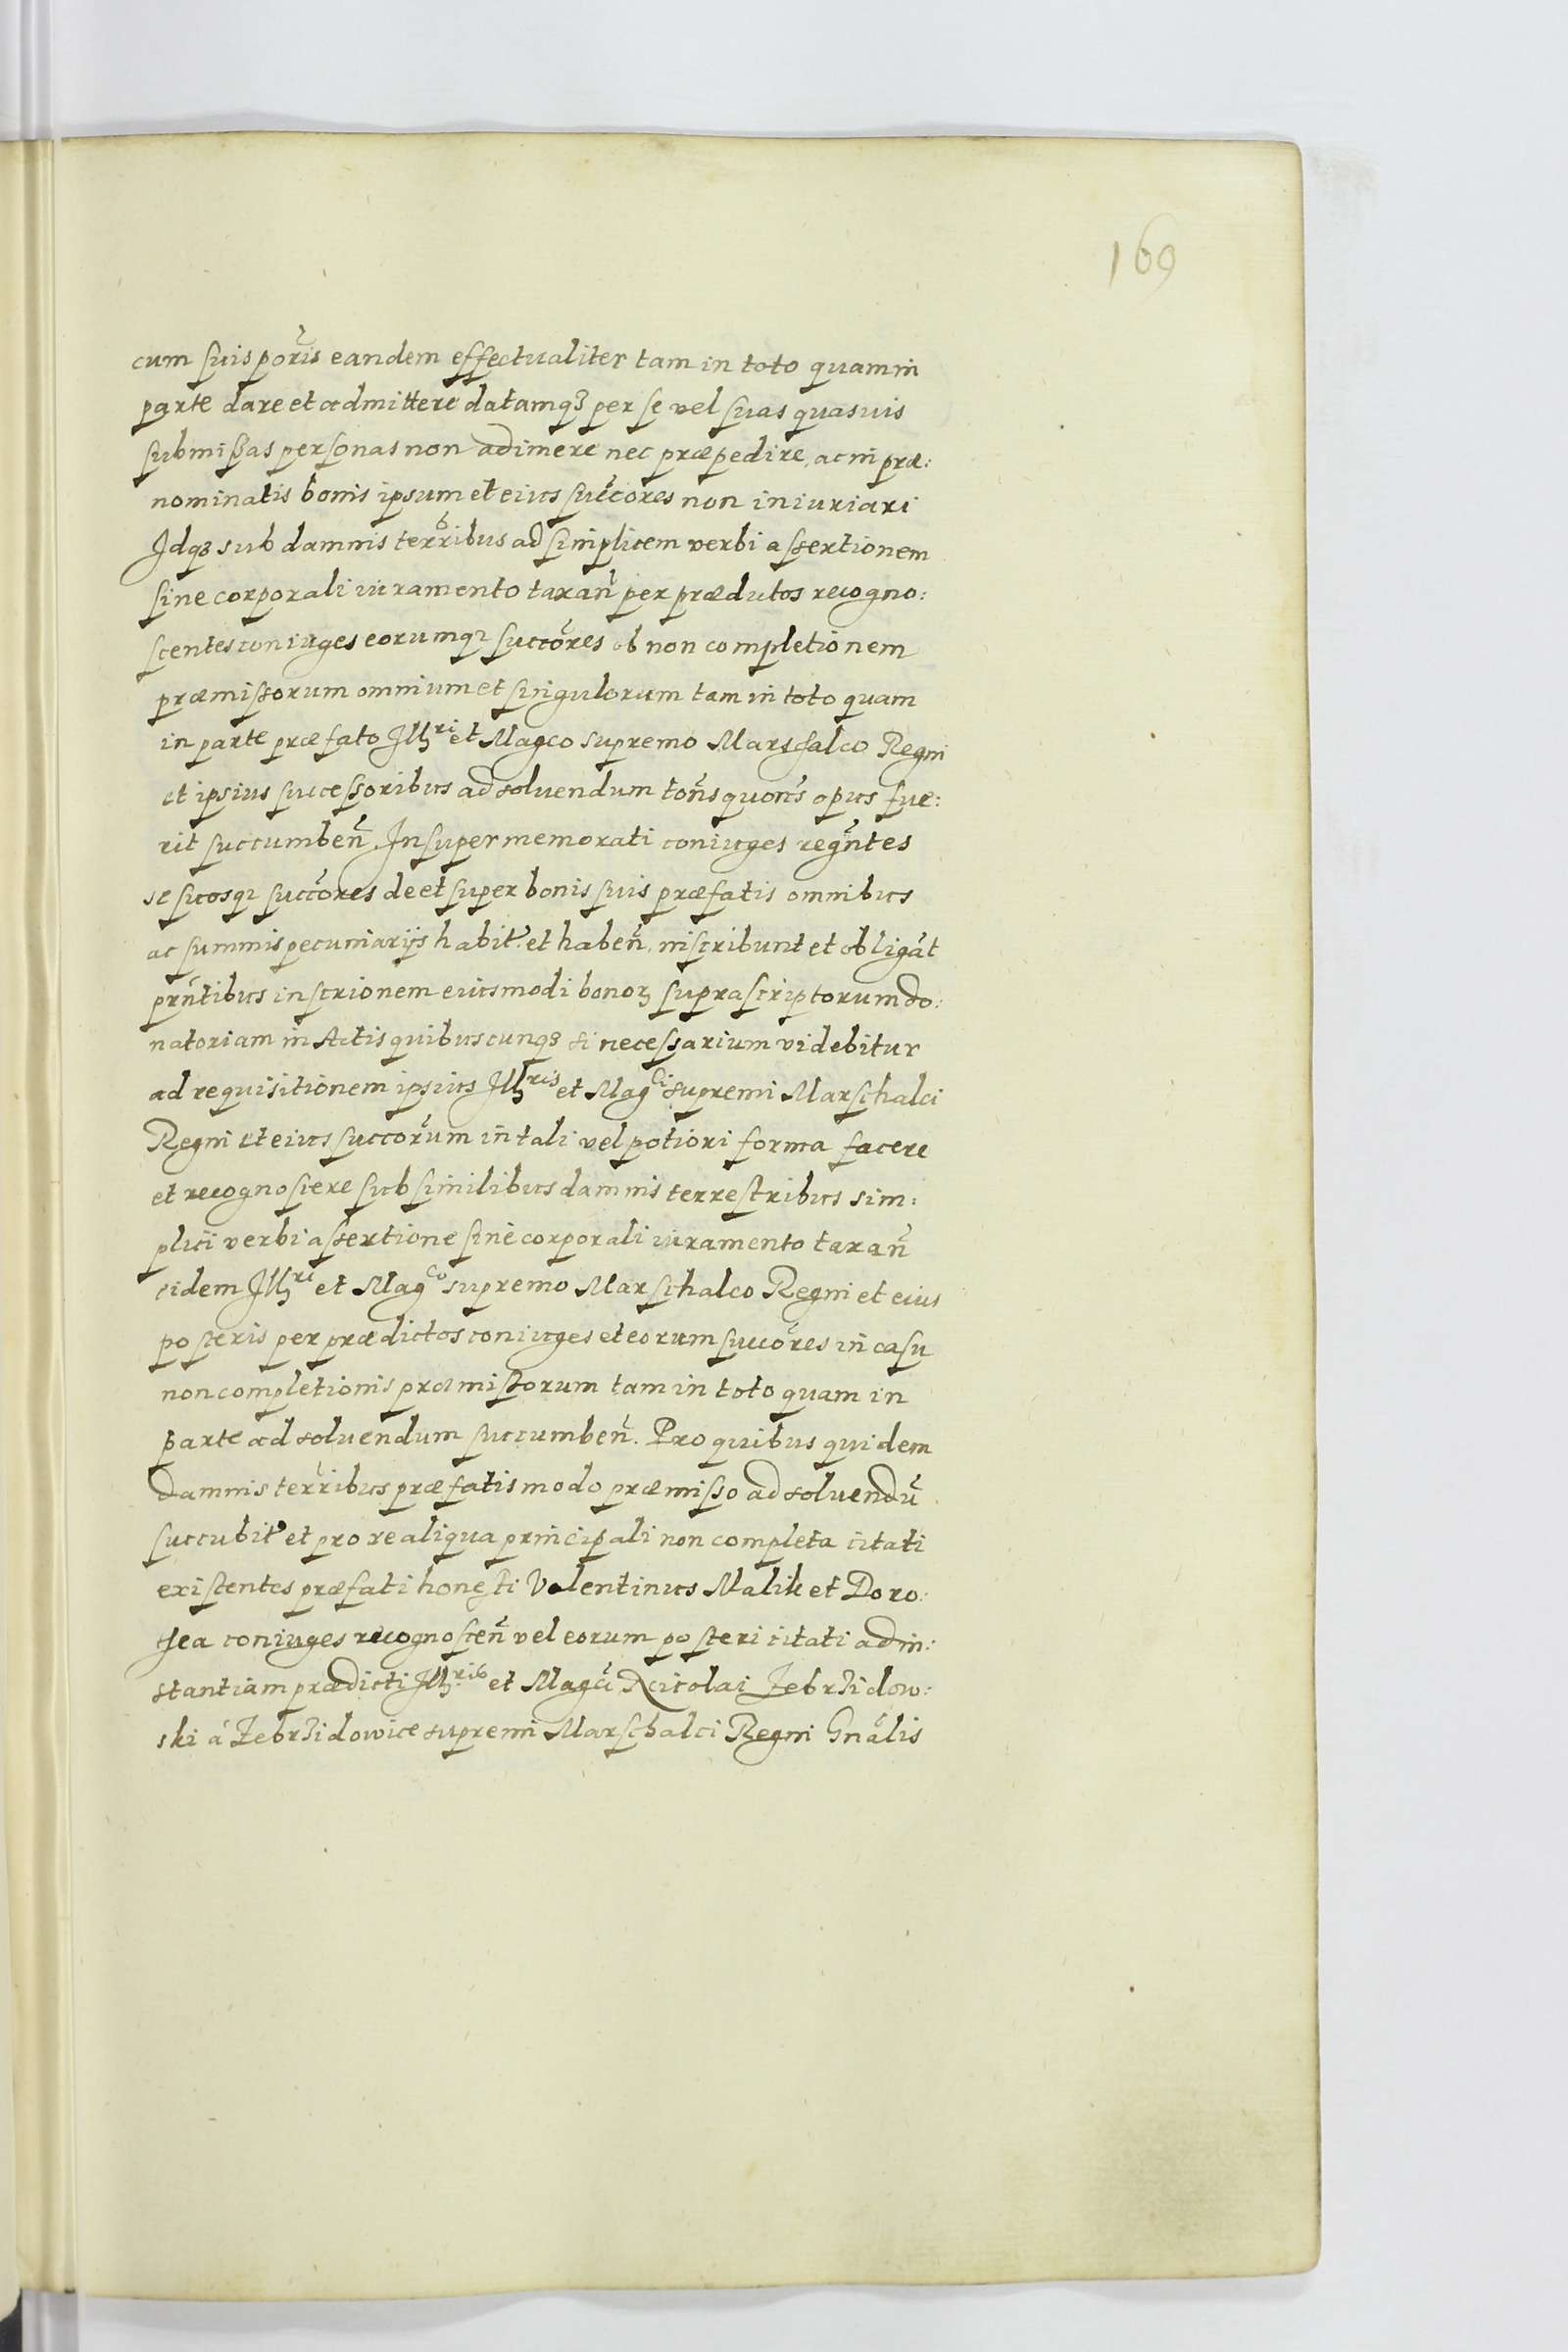 169
cum suis poris eandem effectualiter tam in toto quam in
parte dare et admittere datamq3 per se vel suas quasuis
submissas personas non adimere nec præpedire, ac in præ:
nominatis bonis ipsum et eius succores non iniuriari
Idq3 sub damnis terribus ad simplicem verbi assertionem
sine corporali iuramento taxan̄ per prædictos recogno:
scentes coniuges eorumq3 succores ob non completionem
præmissorum omnium et singulorum tam in toto quam
in parte præfato Illri et Magco supremo Marsalco Regni
et ipsius successoribus ad soluendum tons quons opus fue:
rit succumben̄. Insuper memorati coniuges regntes
se suosq3 succores de et super bonis suis præfatis omnibus
ac summis pecuniarijs habit. et haben̄. inscribunt et obligat
prntibus inscrionem eiusmodi bonoꝝ suprascriptorum do:
natoriam in Actis quibuscunq3 si necessarium videbitur
ad requisitionem ipsius Illris et Magci supremi Marschalci
Regni et eius succorum in tali vel potiori forma facere
et recognoscere sub similibus damnis terrestribus sim:
plici verbi assertione sine corporali iuramento taxan̄
eidem Illri et Magco supremo Marschalco Regni et eius
posteris per prædictos coniuges et eorum succores in casu
non completionis præmissorum tam in toto quam in
parte ad soluendum succumben̄. Pro quibus quidem
damnis terribus præfatis modo præmisso ad soluendū
succubit. et pro re aliqua principali non completa citati
existentes præfati honesti Valentinus Malik et Doro:
thea coniuges recognoscen̄ vel eorum posteri citati ad in:
stantiam prædicti Illris et Magci Nicolai Zebrzidow:
ski á Zebrzidowice supremi Marschalci Regni Gnalis